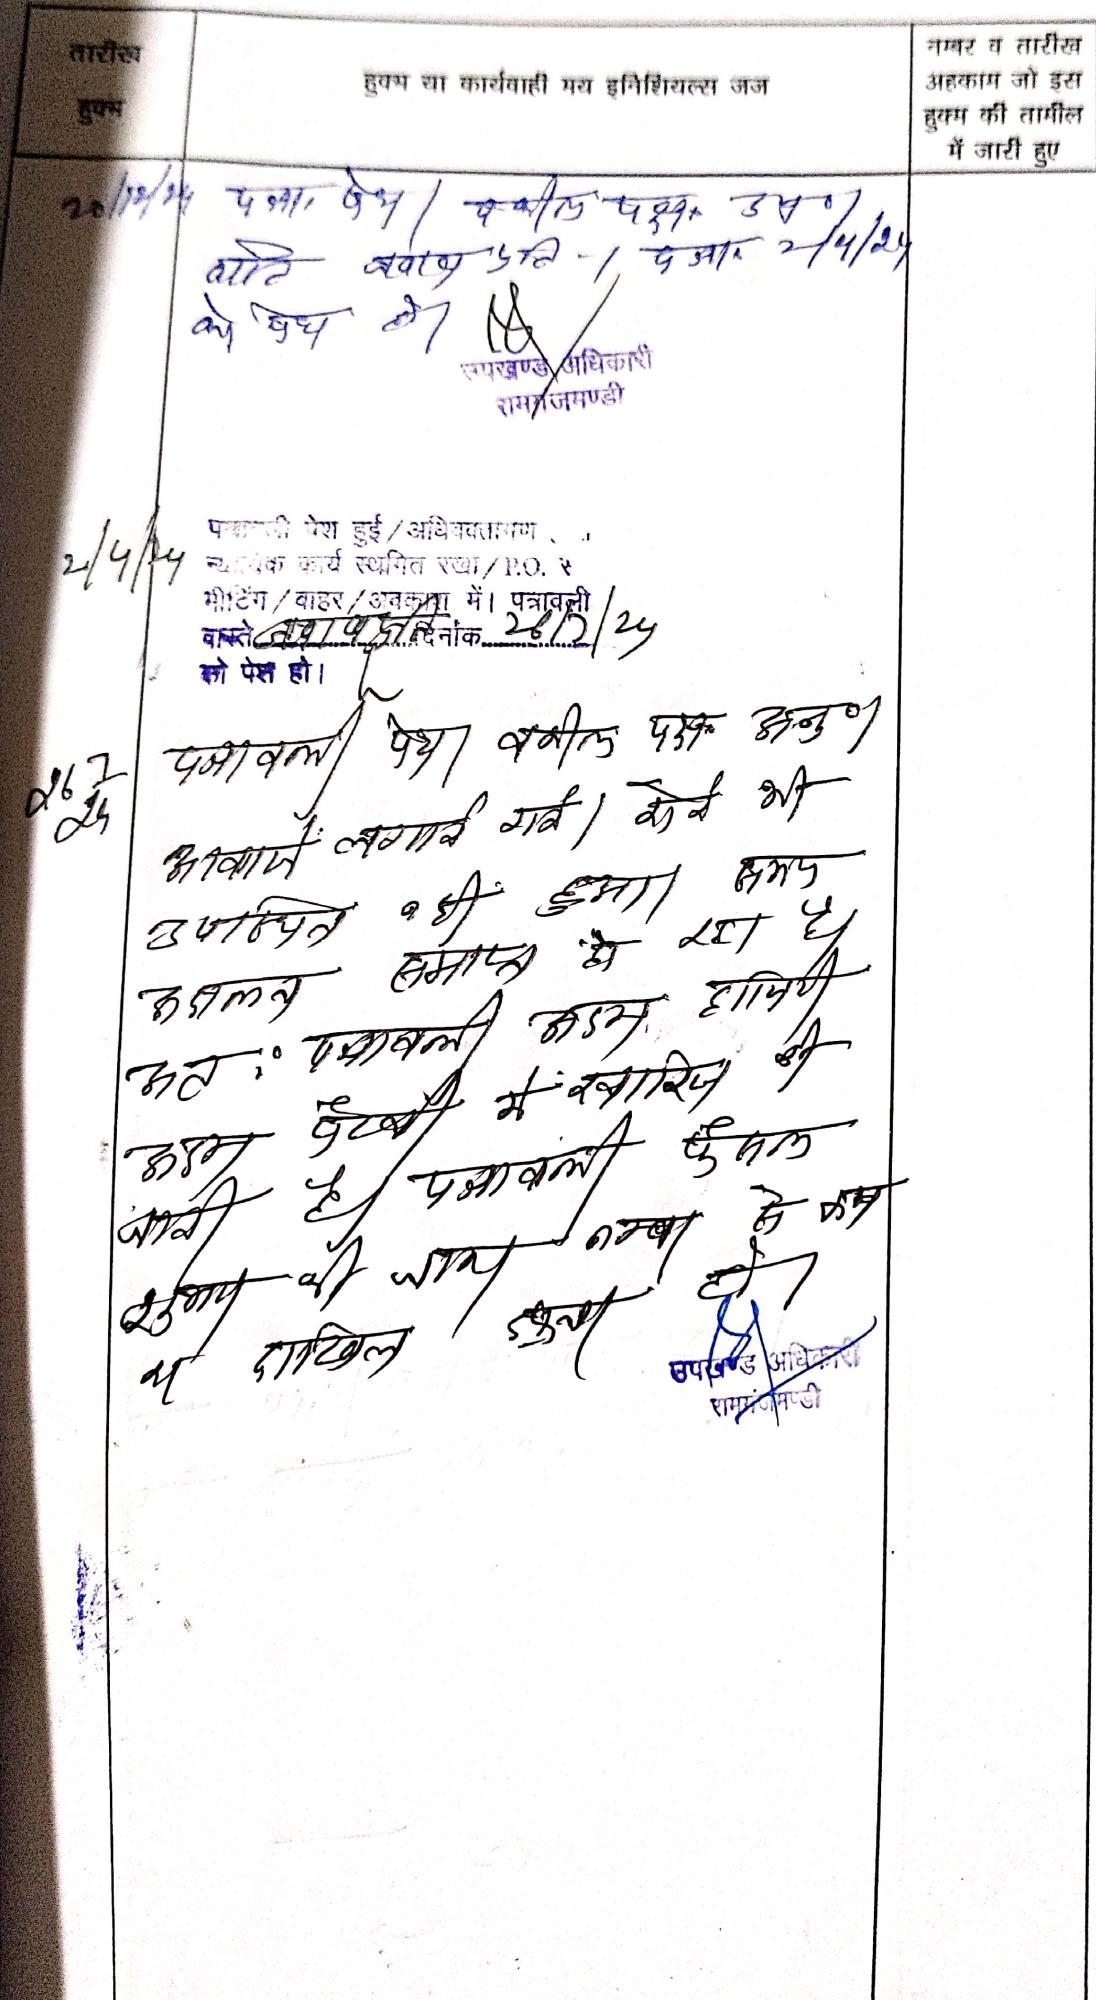 तारीख
हुक्म
हुक्म या कार्यवाही मय इनिशियल्स जज
नम्बर व तारीख
अहकाम जो इस
हुक्म की तामील
में जारी हुए
पत्रा. पेश। वकील पक्ष. उप०।
जवाब प्रति -। पत्रा. 2/4/25
को पेश हो।
उपखण्ड अधिकारी
रामगंजमण्डी
2/4/25
पत्रावली पेश हुई/अधिवक्तागण
न्यायिक कार्य स्थगित रखा/P.O.
मीटिंग/बाहर/अवकाश में। पत्रावली
वास्ते दिनांक 26/7/25
को पेश हो।
26/7/25
पत्रावली पेश। वकील पक्ष. अनु०।
आवाजें लगाई गई। कोई भी
उपस्थित नहीं हुआ। समय
अदालत समाप्त हो रहा है।
अत: पत्रावली अदम हाजिरी
अदम पैरवी में खारिज की
जाती है। पत्रावली फैसल
शुमार की जाय नम्बर से कम
दाखिल हो।
उपखण्ड अधिकारी
रामगंजमण्डी